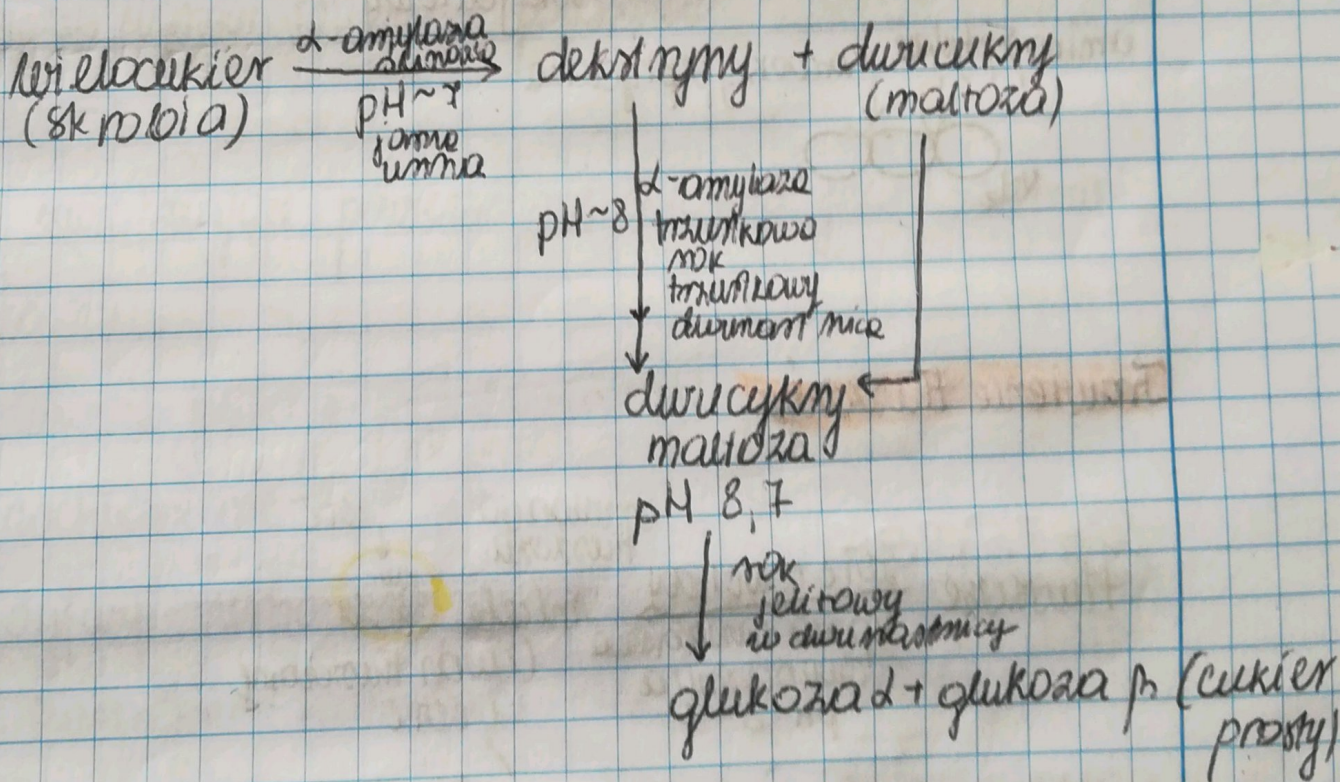 wielocukier α-amylaza ślinowa dekstryny + dwucukry
(skrobia) pH~7 (maltoza)
jama
ustna
α-amylaza
pH~8 trzustkowa
sok
trzustkowy
dwunastnica
dwucykry
maltoza
pH 8,7
sok
jelitowy
w dwunastnicy
glukoza α + glukoza β (cukier
prosty)